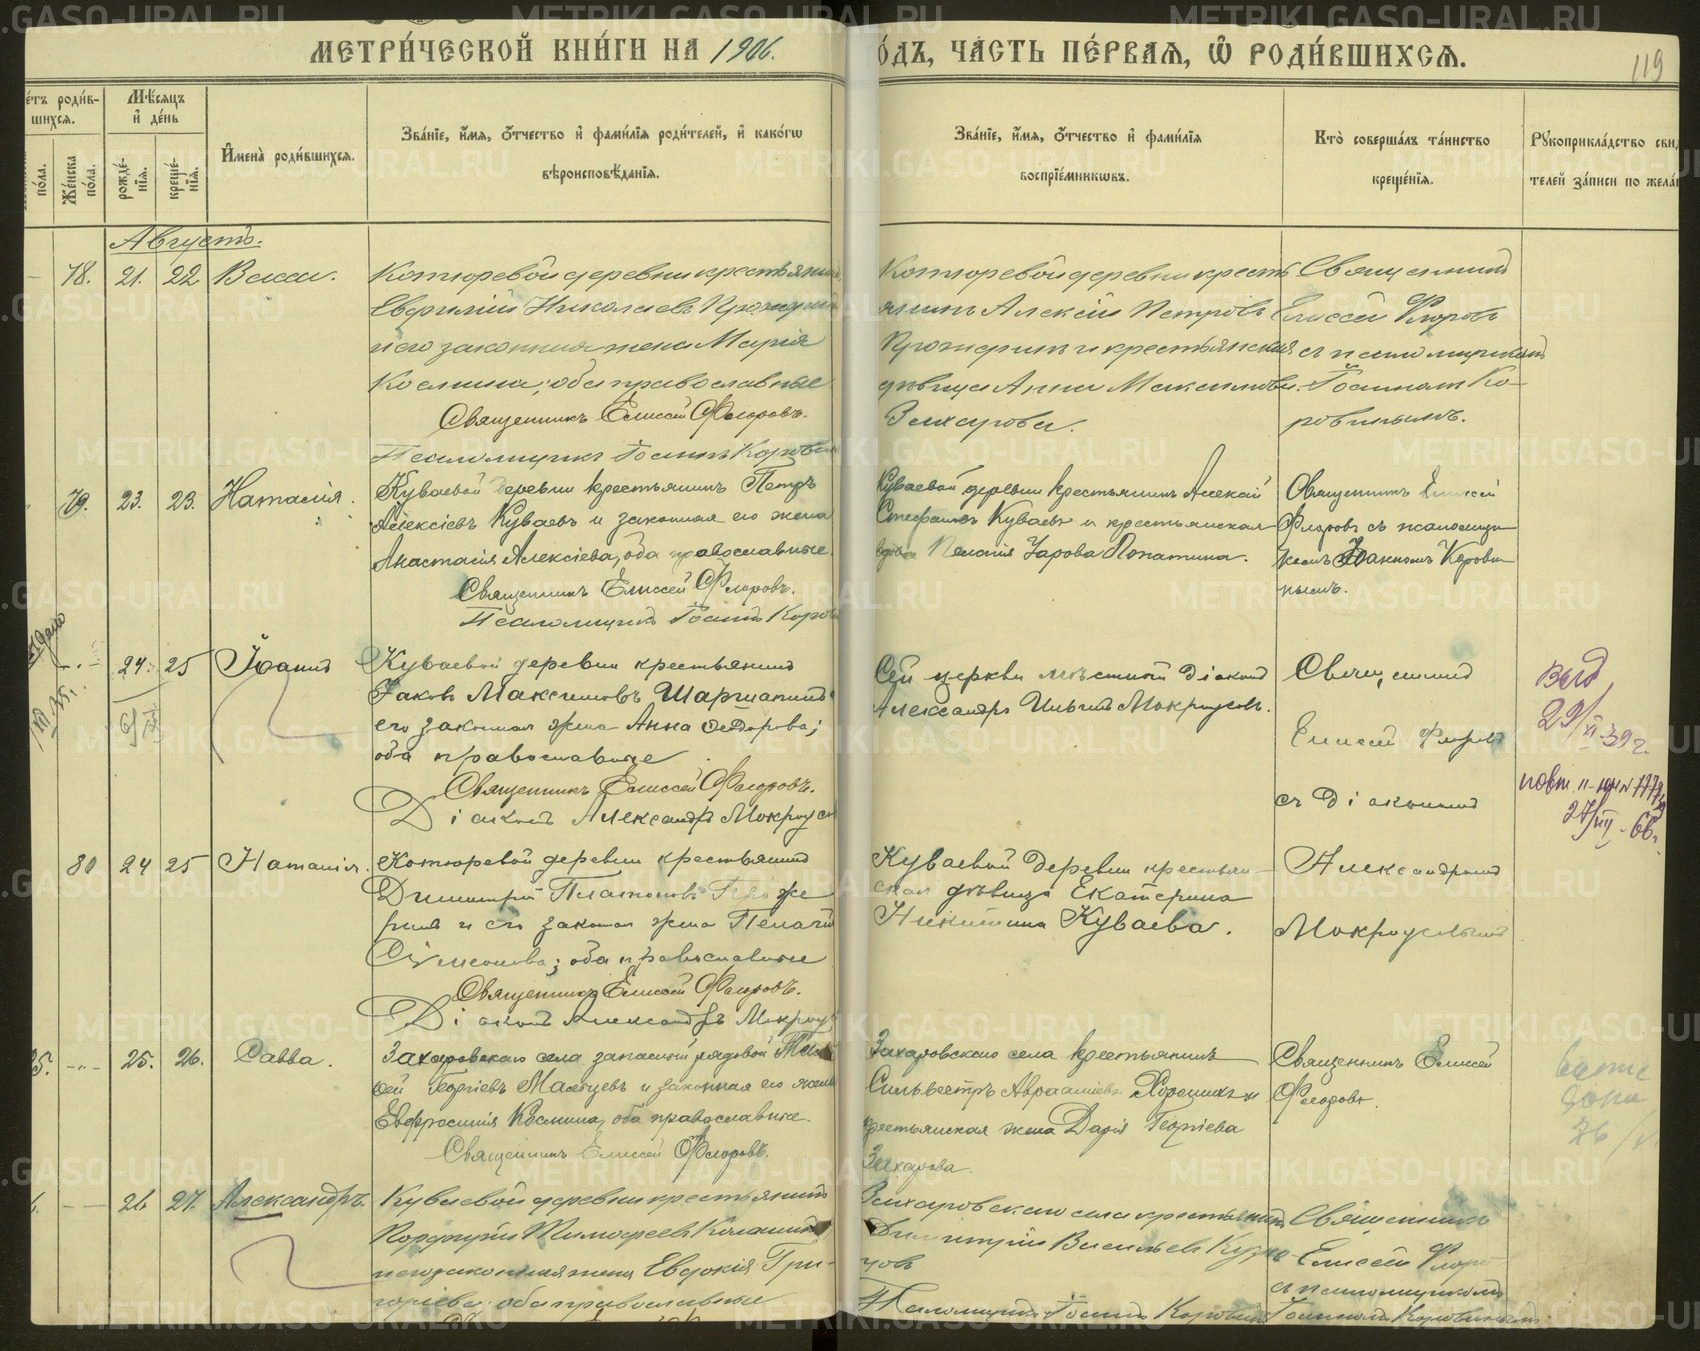 МЕТРИ́ЧЕСКОЙ КНИ́ГИ НА 1906.
ОДЪ, ЧА́СТЬ ПЕ́РВАЯ, Ѽ РОДИ́ВШИХСЯ.
119
е́тъ роди́в-
шихся.
по́ла.
Же́нска
по́ла.
Мѣ́сяцъ
и҆ де́нь
рожде́-
нїя.
креще́-
нїя.
И҆мена̀ роди́вшихся.
Зва́нїе, и҆́мя, ѻ҆́тчество и҆ фами́лїя роди́телей, и҆ како́гѡ
вѣроисповѣ́данїя.
Зва́нїе, и҆́мя, ѻ҆́тчество и҆ фами́лїя
воспрїе́мникѡвъ.
Кто̀ соверша́лъ та́инство
креще́нїя.
Рꙋкоприкла́дство сви
телей за́писи по жела́
Августъ.
78. 21. 22 Васса.
Котюревой деревни крестьянинъ
Евфимій Николаевъ
и его законная жена Марія
Космина; оба православные
Священникъ Елисей Флоровъ.
Псаломщикъ Іоаннъ Коровин
Котюревой деревни кресть
янинъ Алексій Петровъ
и крестьянская
дѣвица Анна Максимова
Захарова.
Священникъ
Елисей Флоровъ
съ псаломщикомъ
Іоанномъ Ко-
ровинымъ.
79. 23. 23. Наталія.
Куваевой деревни крестьянинъ Петръ
Алексіевъ Куваевъ и законная его жена
Анастасія Алексіева, оба православные.
Священникъ Елисей Флоровъ.
Псаломщикъ Іоаннъ Коров
Куваевой деревни крестьянинъ Алексій
Стефановъ Куваевъ и крестьянская
вдова Пелагія Уарова Лопатина.
Священникъ Елисей
Флоровъ съ псаломщи
комъ Іоанномъ Корови
нымъ.
24. 25 Іоаннъ
Куваевой деревни крестьянинъ
Іаковъ Максимовъ
его законная жена Анна Ѳедорова;
оба православные
Священникъ Елисей Флоровъ.
Діаконъ Александръ Мокроус
Сей церкви мѣстный діаконъ
Александръ Ильинъ Мокроусовъ.
Священникъ
Елисей Флоровъ
съ Діакономъ
выд
29/XI-39г.
повт.
27/VII-66г.
80 24 25 Наталія.
Котюревой деревни крестьянинъ
Димитрій Платоновъ
и его законная жена Пелагія
Сѵмеонова; оба православные
Священникъ Елисей Флоровъ.
Діаконъ Александръ Мокроу
Куваевой деревни крестьян-
ская дѣвица Екатерина
Никитина Куваева.
Александромъ
Мокроусовымъ
35. 25. 26. Савва.
Захаровскаго села запасный рядовой
Георгіевъ Мальцевъ и законная его жена
Евфросинія Космина, оба православные.
Священникъ Елисей Флоровъ.
Захаровскаго села крестьянинъ
Сильвестръ Авраамievъ и
крестьянская жена Дарія Георгіева
Захарова.
Священникъ Елисей
Флоровъ.
26 27. Александръ.
Куваевой деревни крестьянинъ
Порфирій Тимофеевъ
и его законная жена Евдокія Гри-
горіева, оба православные
Захаровскаго села крестьянинъ
Димитрій Васильевъ Кузне
цовъ
Псаломщикъ Іоаннъ Коровинъ
Священникъ
Елисей Флоро
съ псаломщикомъ
Іоанномъ Коровинымъ
METRIKI.GASO-URAL.RU